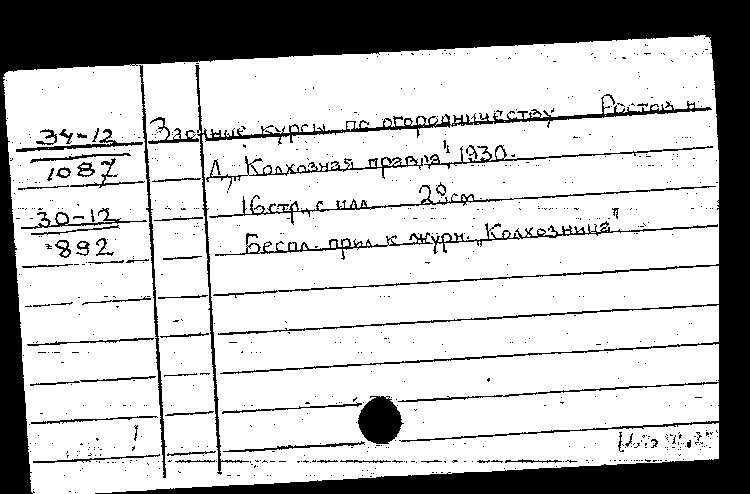 34-12
1087
30-12
892
Заочные курсы по огородничеству Ростов н
Д, „Колхозная правда", 1930.
16 стр., с илл. 28 см.
Беспл. прил. к журн. „Колхозница".